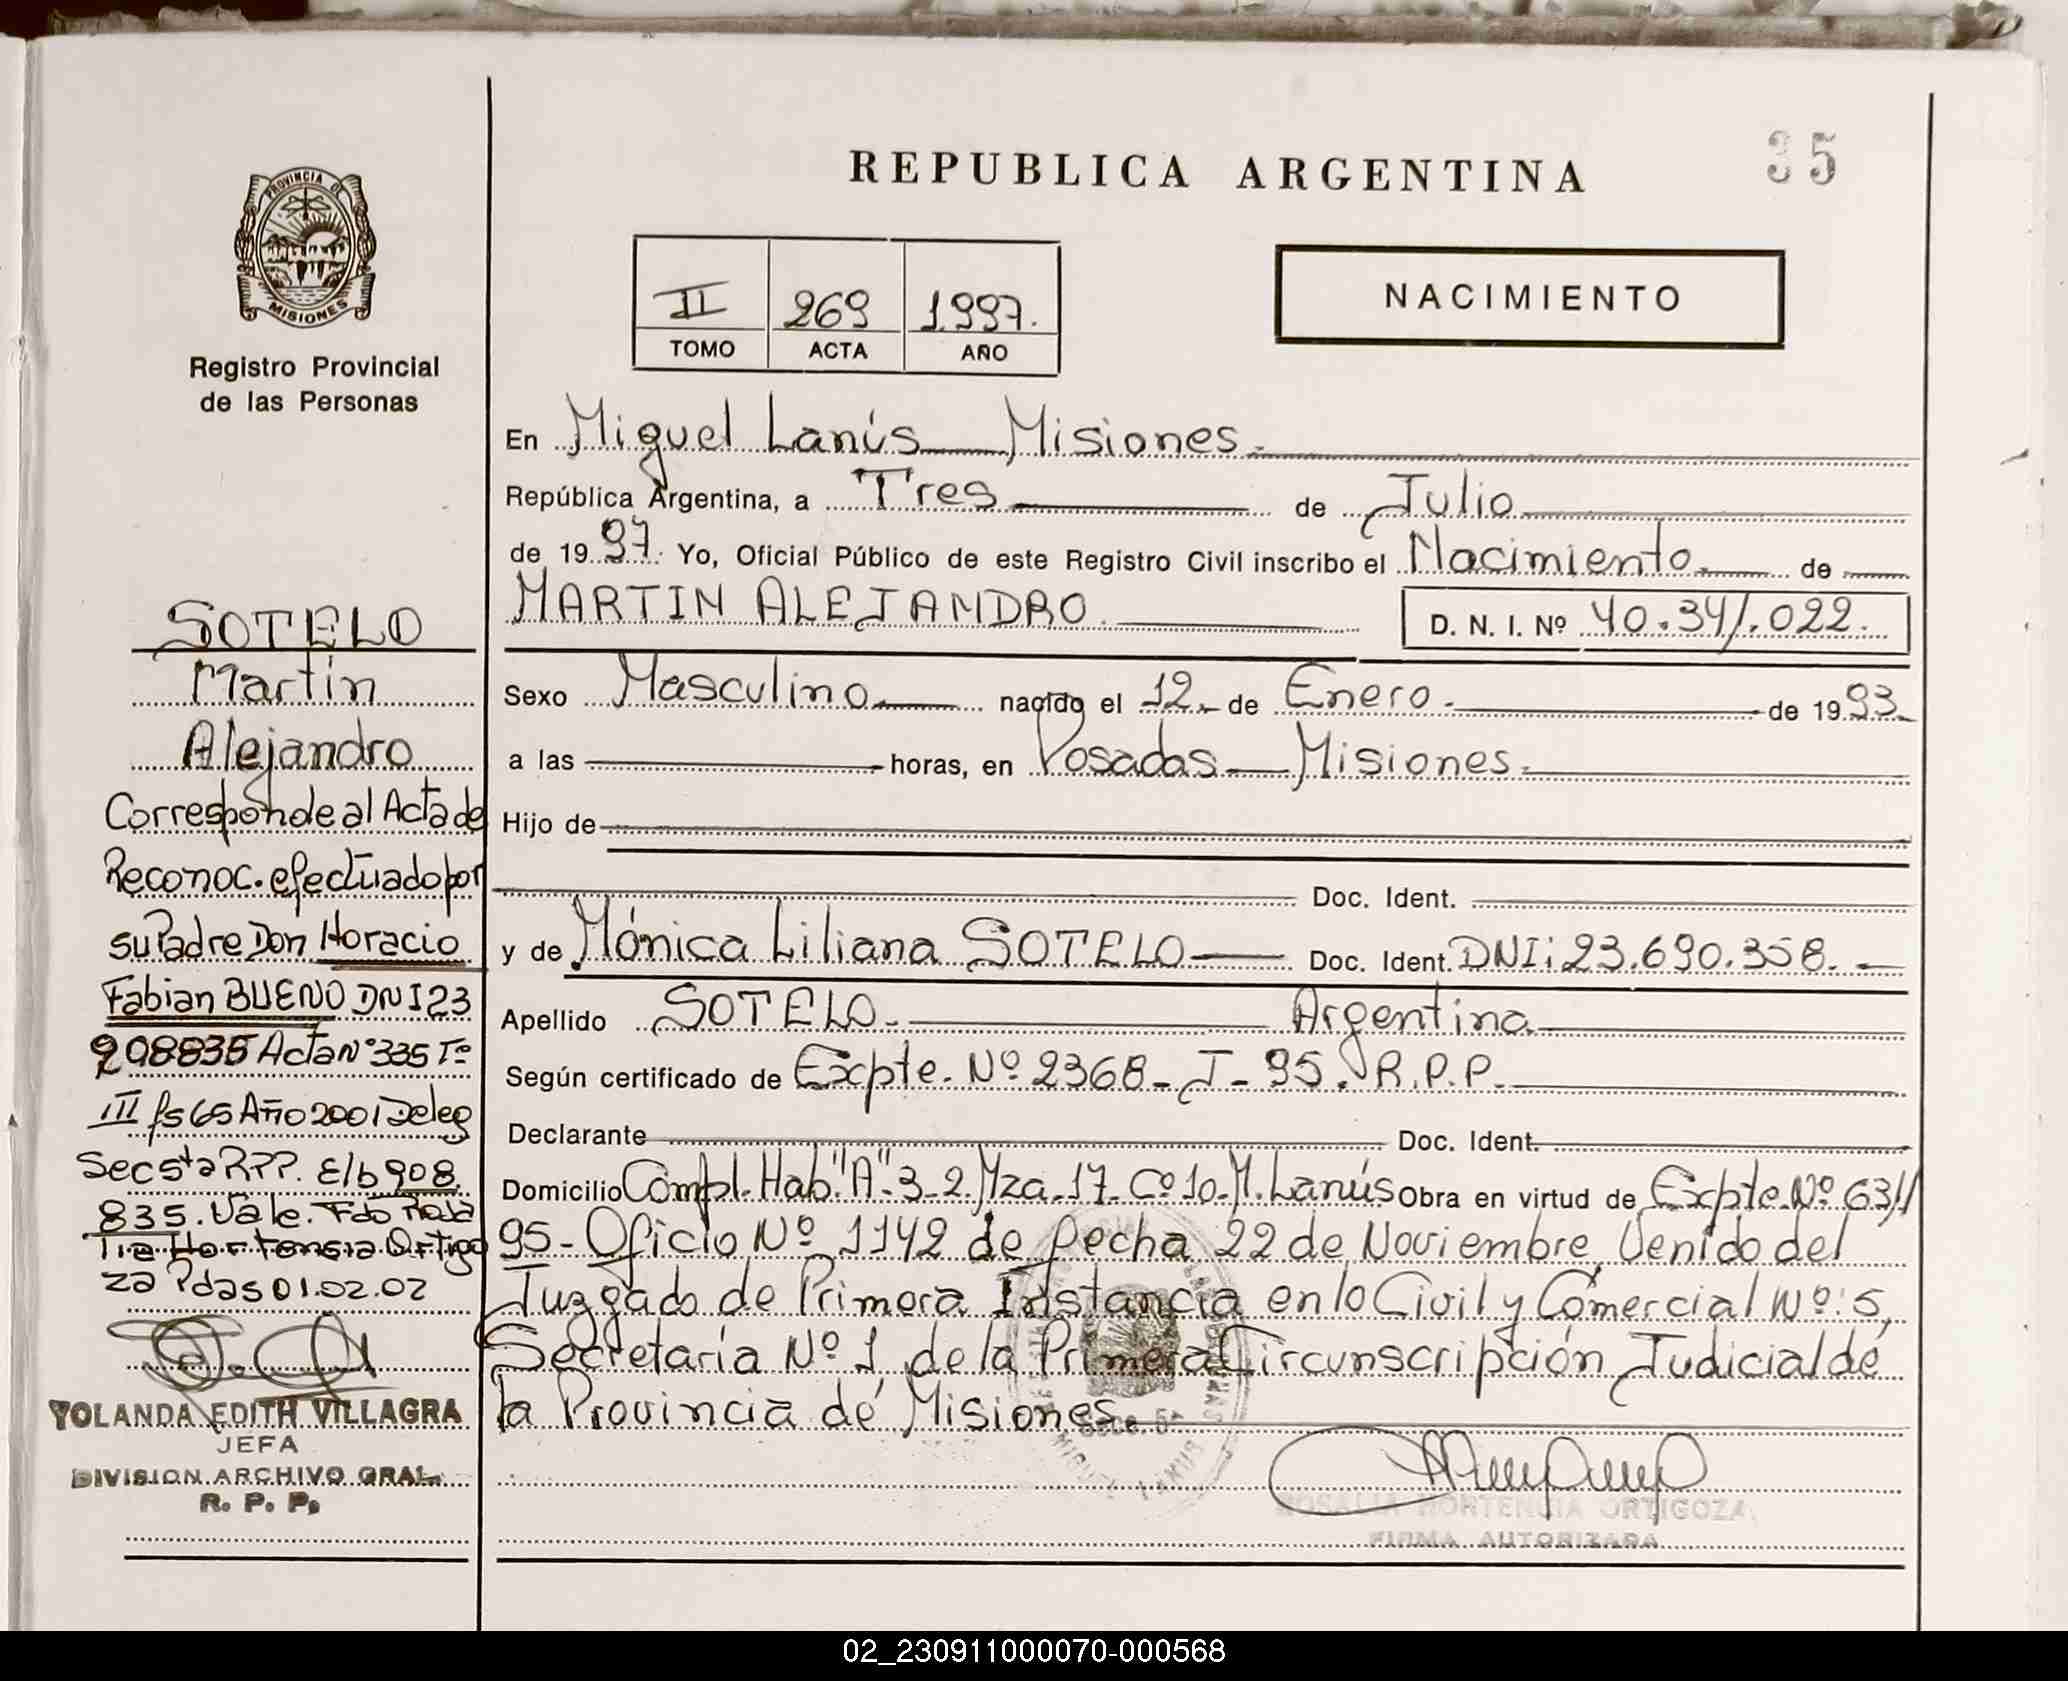 REPUBLICA ARGENTINA
35
PROVINCIA DE
MISIONES
Registro Provincial
de las Personas
II 269 1.997.
TOMO ACTA AÑO
NACIMIENTO
En Miguel Lanús Misiones.
República Argentina, a Tres de Julio
de 1997. Yo, Oficial Público de este Registro Civil inscribo el Nacimiento. de
MARTIN ALEJANDRO.
D. N. I. Nº 40.341.022.
Sexo Masculino nacido el 12 de Enero. de 1993.
a las horas, en Posadas Misiones.
Hijo de
Doc. Ident.
y de Mónica Liliana SOTELO Doc. Ident. DNI: 23.690.358.
Apellido SOTELO. Argentina
Según certificado de Expte. Nº 2368-J-95. R.P.P.
Declarante Doc. Ident.
Domicilio Compl. Hab. "A"-3-2 Mza.17-Cº10-M. Lanús Obra en virtud de Expte. Nº 631/
95-Oficio Nº 1142 de fecha 22 de Noviembre, Venido del
Juzgado de Primera Instancia en lo Civil y Comercial Nº:5,
Secretaría Nº 1, de la Primera Circunscripción Judicial de
la Provincia de Misiones.
ROSALIA HORTENCIA ORTIGOZA
FIRMA AUTORIZADA
SOTELO
Martin
Alejandro
Corresponde al Acta de
Reconoc. efectuado por
su Padre Don Horacio
Fabian BUENO DNI 23
908835 Acta Nº 335 Tº
III fs 65 Año 2001 Deleg
Sec 5ta RPP. E/b 908.
835. Vale. Fdo Rosa
lia Hortensia Ortigo
za Pdas 01.02.02
YOLANDA EDITH VILLAGRA
JEFA
DIVISION ARCHIVO GRAL.
R. P. P.
02_230911000070-000568